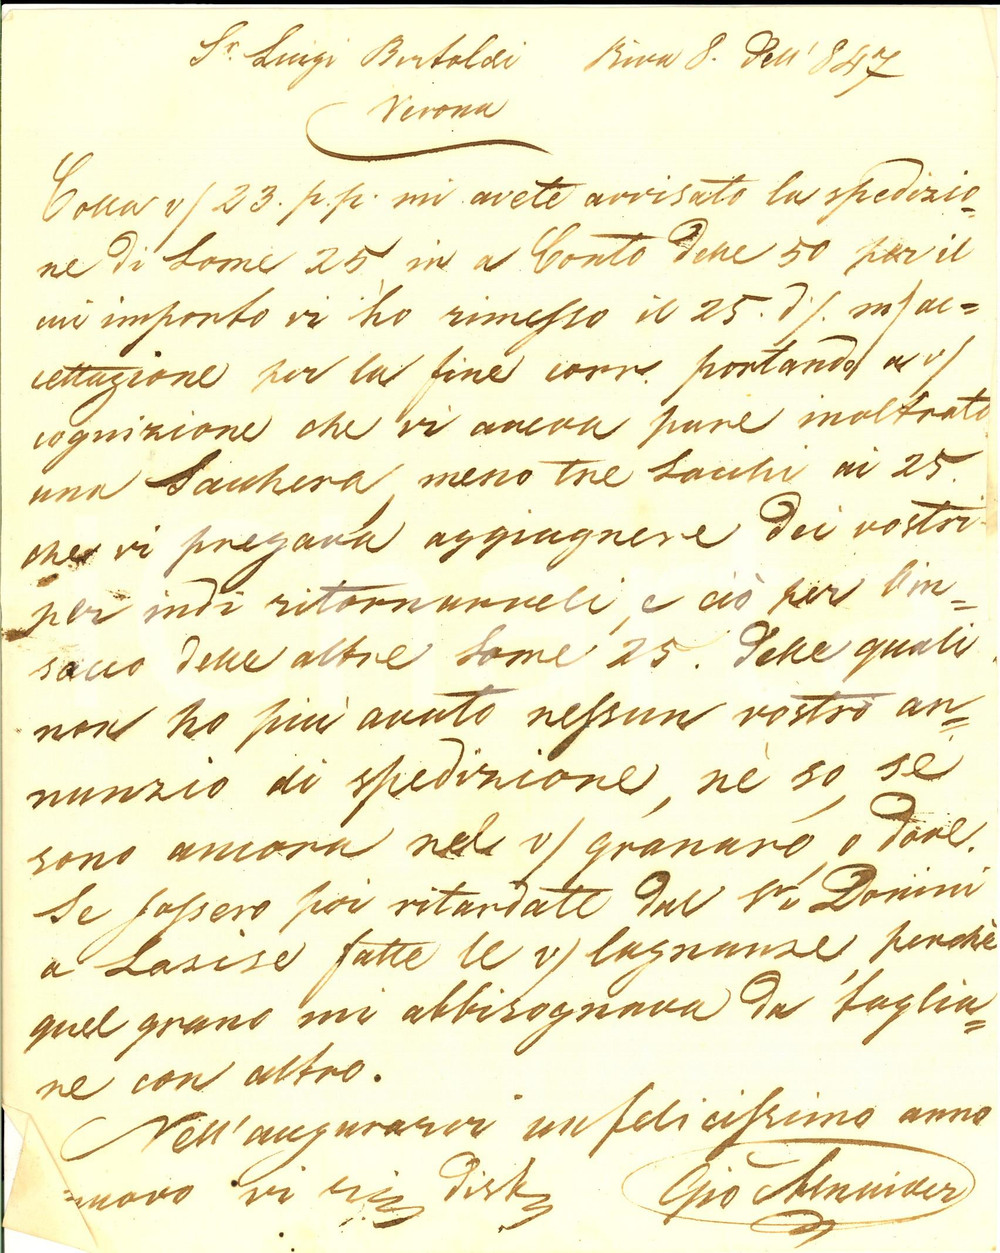 Sr. Luigi Bertoldi Riva 8. Dell' 847
Verona
Colla v/ 23. p.p. mi avete avvisato la spedizio=
ne di Some 25 in a Conto delle 50 per il
cui importo vi hò rimesso il 25. d/. m/ ac=
cettazione per la fine corr. portando a v/
cognizione che vi aveva pure inoltrato
una Sacchera, meno tre Sacchi ai 25.
che vi pregava aggiugnere dei vostri
per indi ritornarveli, e ciò per l'in=
sacco delle altre Some 25. delle quali
non ho più avuto nessun vostro an=
nunzio di spedizione, nè so, se
sono ancora nel v/ granaro, o dove.
Se fossero poi ritardate dal Sr. Donini
a Lasise fatte le v/ lagnanze, perchè
quel grano mi abbisognava da taglia=
re con altro.
Nell'augurarvi un felicissimo anno
nuovo vi
Gio